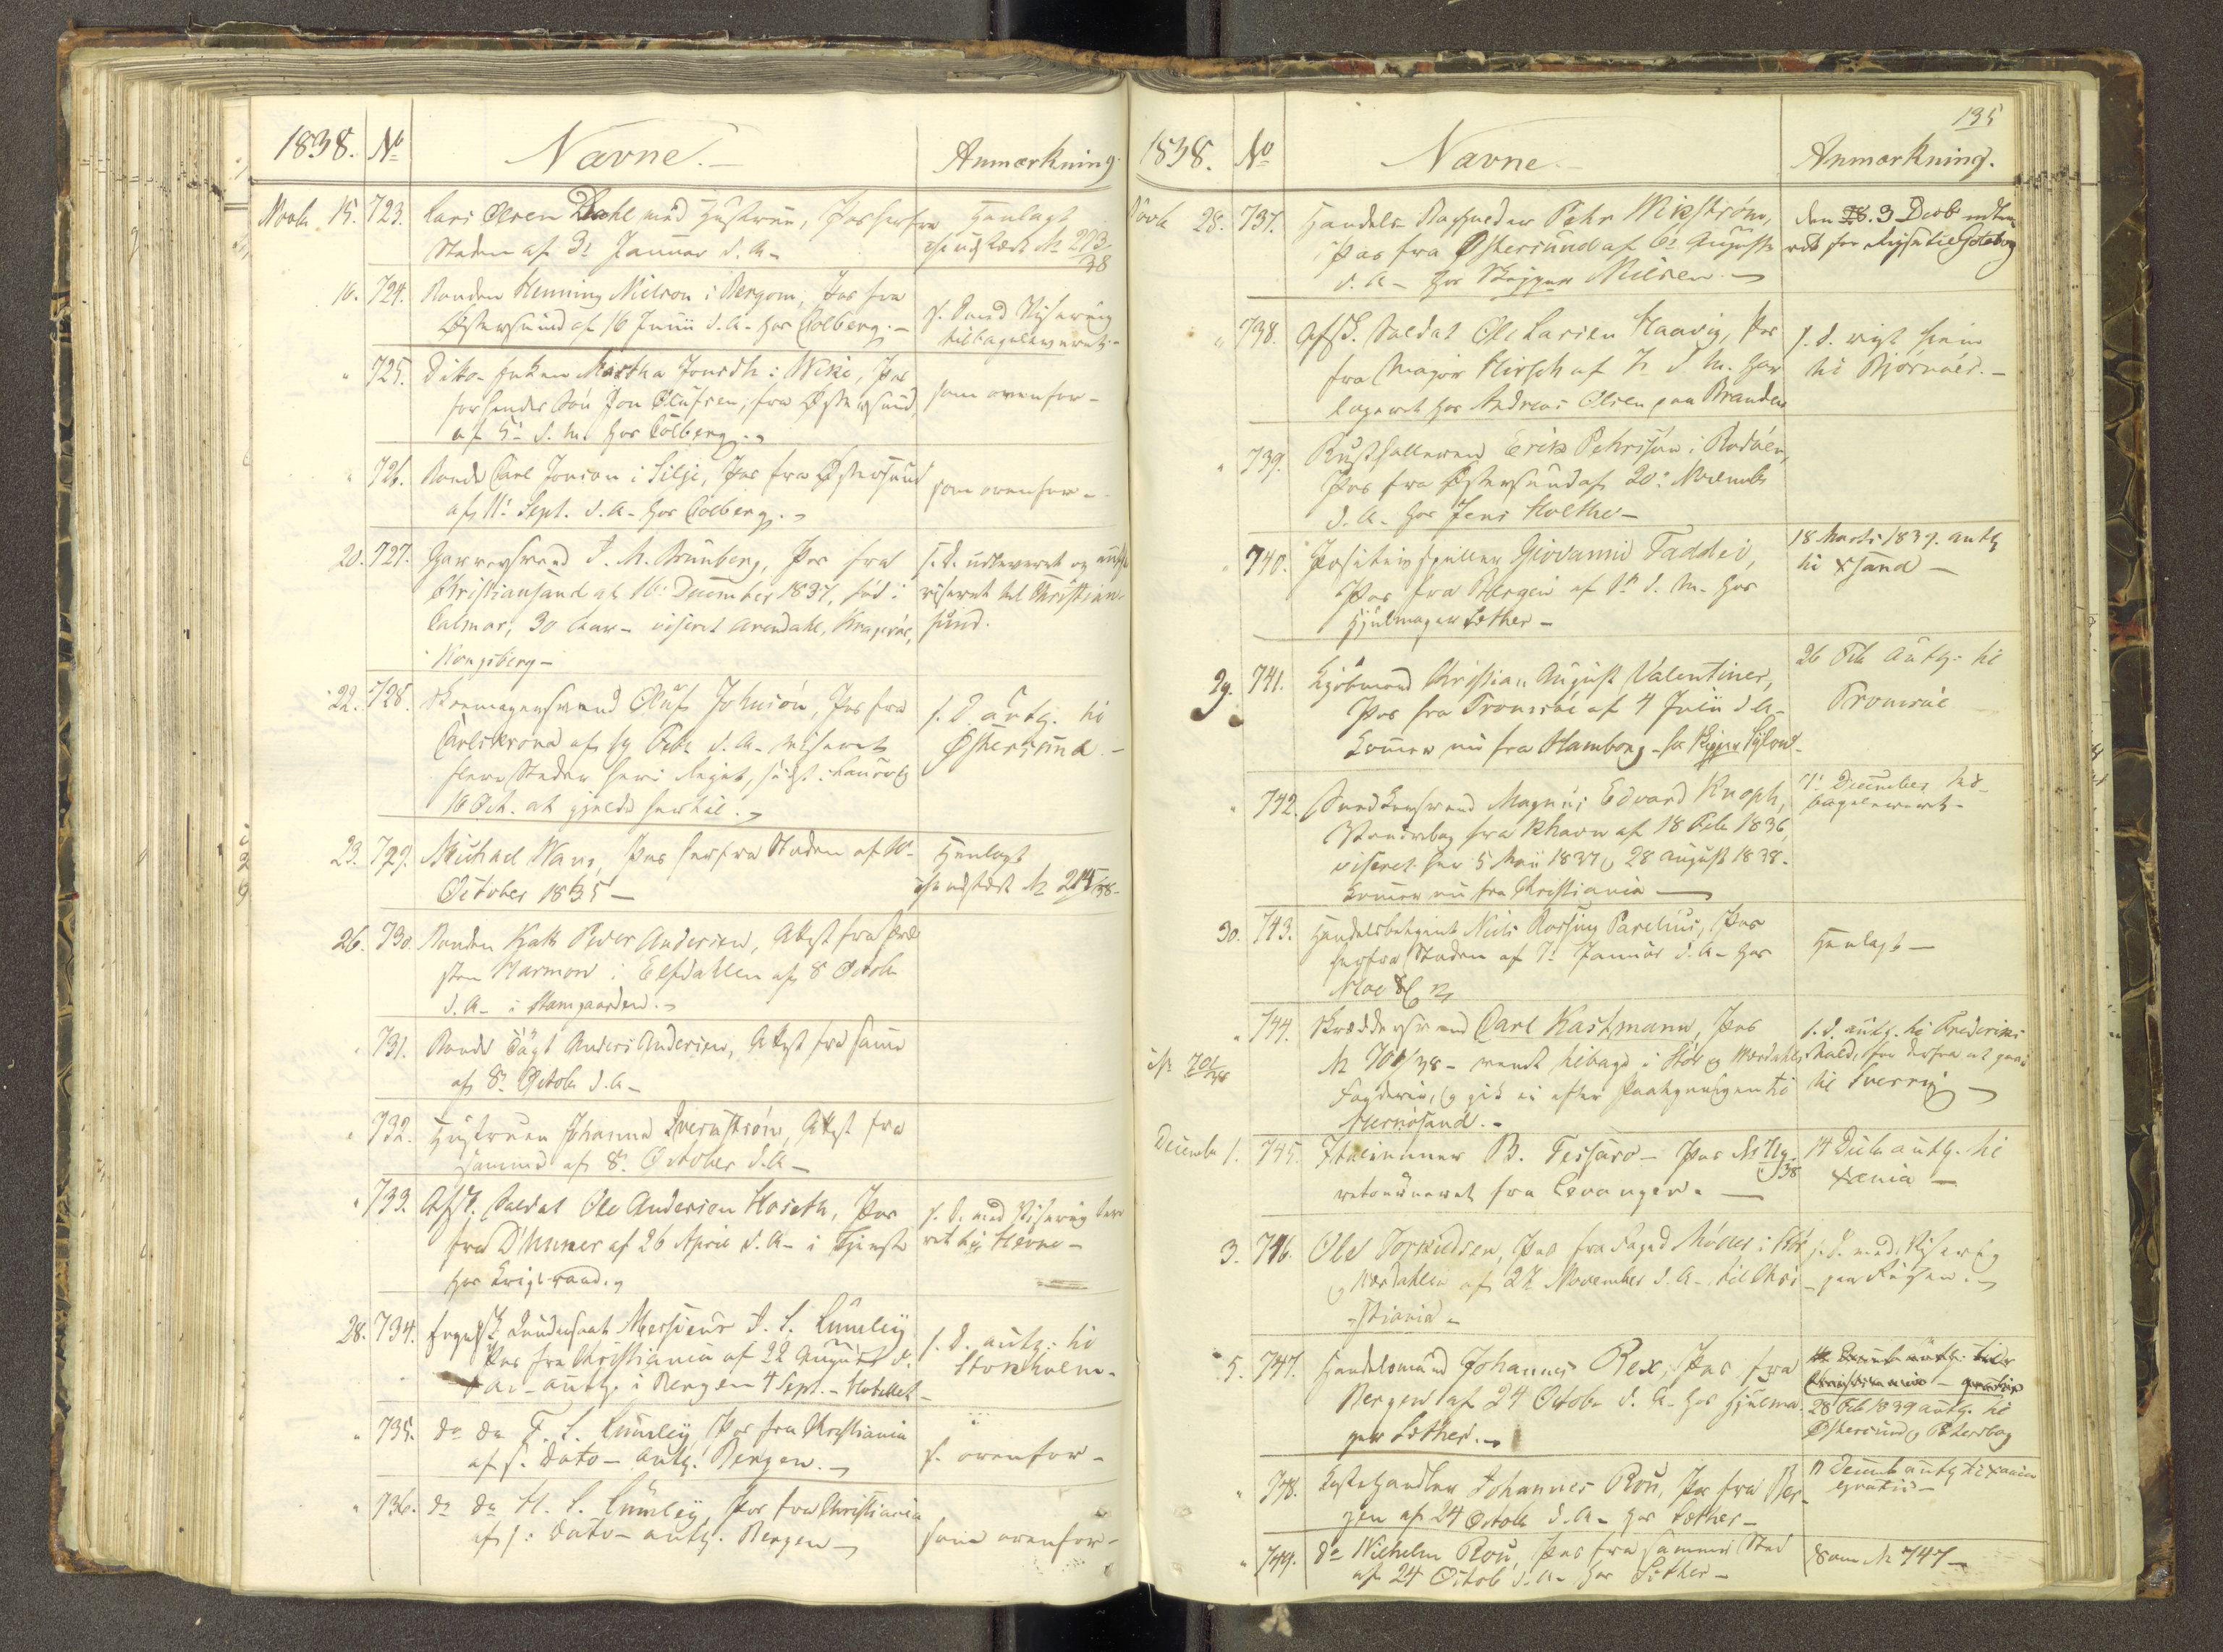 1838. No Navne.- Anmærkning
Novbr 15. 723. Lars Olsen Dahl med Hustrue, Pas herfra
Staden af 3: Januar d. A.-
Henlagt
No 213/38
16. 724. Bonden Henning Nielson i Bergom, Pas fra
Østersund af 16 Junii d. A. hos Colberg.-
s. D. med Visering
tilbageleveret.-
" 725. Ditto Enken Märtha Jonsdtr: Wike, Pas
for hendes Søn Jon Olufsen, fra Østersund,
af 5: d. M. hos Colberg.-
som ovenfor-
" 726. Bonde Carl Jonson i Silje, Pas fra Østersund
af 11: Sept. d. A. hos Colberg.-
som ovenfor-
20. 727. Garversvend J. M. Brunberg, Pas fra
Christiansand af 16: December 1837, född i
Calmar, 30 Aar- viseret Arendahl, Kragerøe,
Kongsberg-
s. D. udleveret og
viseret til Christian-
sund.
22. 728. Skomagersvend Oluf Johnsón, Pas fra
Carlskrona af 19 Febr d. A. viseret
flere Steder her i Riget, sidst i Laurvig
16 Oct. at gjelde hertil.-
s. D. antg. til
Østersund.-
23. 729. Michael Wang, Pas herfra Staden af 10-
October 1835-
Henlagt
No 215/38-
26. 730. Bonden Katt Peder Andersen, Attest fra
sten Harmon i Elfdahlen af 8 Octobr
d. A.- i Hamgaarden.-
" 731. Bonde Tägt Anders Andersen, Attest fra samme
af 8: Octobr d. A.-
" 732. Hustruen Johanna Qvernström, Attest fra
samme af 8: October d. A.-
" 733. Afsk. Soldat Ole Andersen Hoseth, Pas
fra D'Hunes af 26 April d. A.- i Tjeneste
hos
s. D. med Visering
til Hevne-
28. 734. Engelsk Undersaat Messieur J. S. Lumley
Pas fra Christiania af 22 August d.
A.- antg. i Bergen 4 Sept.- Hotellet-
s. D. antg: til
Stokholm.
" 735. do do F. S. Lumley, Pas fra Christiania
af s. Dato- antg. Bergen.-
s. ovenfor-
" 736. do do H. S. Lumley, Pas fra Christiania
af s: Dato- antg. Bergen-
som ovenfor-
135
1838. No Navne- Anmærkning.
Novbr 28. 737. Handels Pehr Wikström,
Pas fra Østersund af 6: August
d. A- hos Skipper Nilsen-
den 28. 3 Decb
for Reise til Göteborg
" 738. Afsk. Soldat Ole Larsen Haavig, Pas
fra Major Hirsch af 7: d. M. har
logeret hos Andreas Olsen paa Branden
s. D. hjem
til Bjørnøer.-
" 739. Rusthalleren Erik Pehrson i Rödöen,
Pas fra Østersund af 20: November
d. A- hos Jens Holthe-
" 740. Positivspiller Giovanni Taddei,
Pas fra Bergen af 1: d. M. hos
Hjulmager Lother-
18 Marts 1839. antg
til Xsand-
29. 741. Kjöbmand Christian August Valentiner,
Pas fra Tromsøe af 4 Juli d A-
kommer nu fra Hamborg- hos Skipper
26 Feb antg: til
Tromsøe
" 742. Snedkersvend Magnus Edvard Knoph,
Vandrebog fra Khavn af 18 Feb 1836,
viseret her 5 Maii 1837 og 28 August 1838.
kommer nu fra Christiania-
7: December til-
bageleveret-
30. 743. Handelsbetjent Niels Rossing Parelius, Pas
herfra Staden af 7: Januar d. A- hos
Moe & Cp
Henlagt-
" 744. Skräddersvend Carl Kastmann, Pas
No 701/38- vendt tilbage i Stör og Werdahlens
Fogderie, og gik ei efter Paategningen til
Hernösand.-
cfr 701/38
s. D. antg. til Frederiks-
hald, for derfra at gaae
til Sverrig-
Decembr 1. 745. Italieneren B. Tessaro- Pas No /38
retourneret fra Levanger.-
14 Decb antg. til
Xania-
3. 746. Ole Torkildsen, Pas fra Foged Möller i Stör
og Werdahlen af 27 November d. A- til Chri-
stiania-
s. D. med Visering
paa Reisen.-
5. 747. Handelsmand Johannes Rex, Pas fra
Bergen af 24 Octob d. A- hos Hjulma-
ger Lother.-
28 Feb 1839 antg. til
Østersund og Petersborg
" 748. Johannes Rou, Pas fra Ber-
gen af 24 Octob d. A- hos Lother-
11 Decemb antg til Xania
gratis-
" 749. do Wilhelm Rou, Pas fra samme Sted
af 24 Octob d. A- hos Lother-
Som No 747-